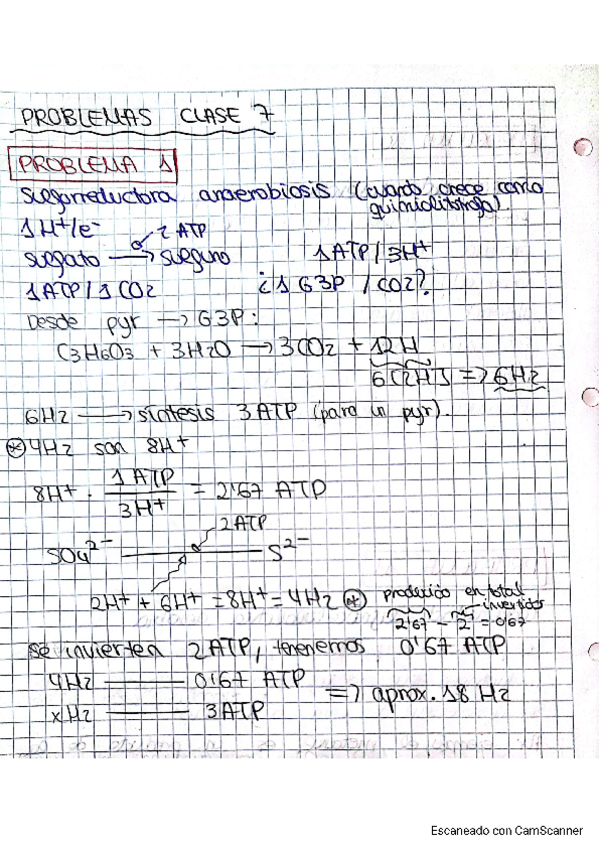 PROBLEMAS CLASE 7
PROBLEMA 1
Sulforreductora anaerobiosis (cuando crece como quimiolitotrofa).
1H+/e-
2 ATP
sulfato → sulfuro 1ATP/3H+
1ATP/1CO2 ¿1 G3P /CO2?
Desde pyr → G3P:
C3H6O3 + 3H2O → 3CO2 + 12H
6[2H] => 6H2
6H2 → síntesis 3ATP (para un pyr).
* 4H2 son 8H+
8H+ · 1ATP / 3H+ = 2'67 ATP
2ATP
SO4 2- — S2-
2H+ + 6H+ = 8H+ = 4H2 * producido en total
invertidos
2'67 - 2 = 0'67
Se invierten 2ATP, tenemos 0'67 ATP
4H2 — 0'67 ATP
xH2 — 3ATP => aprox. 18 H2
Escaneado con CamScanner